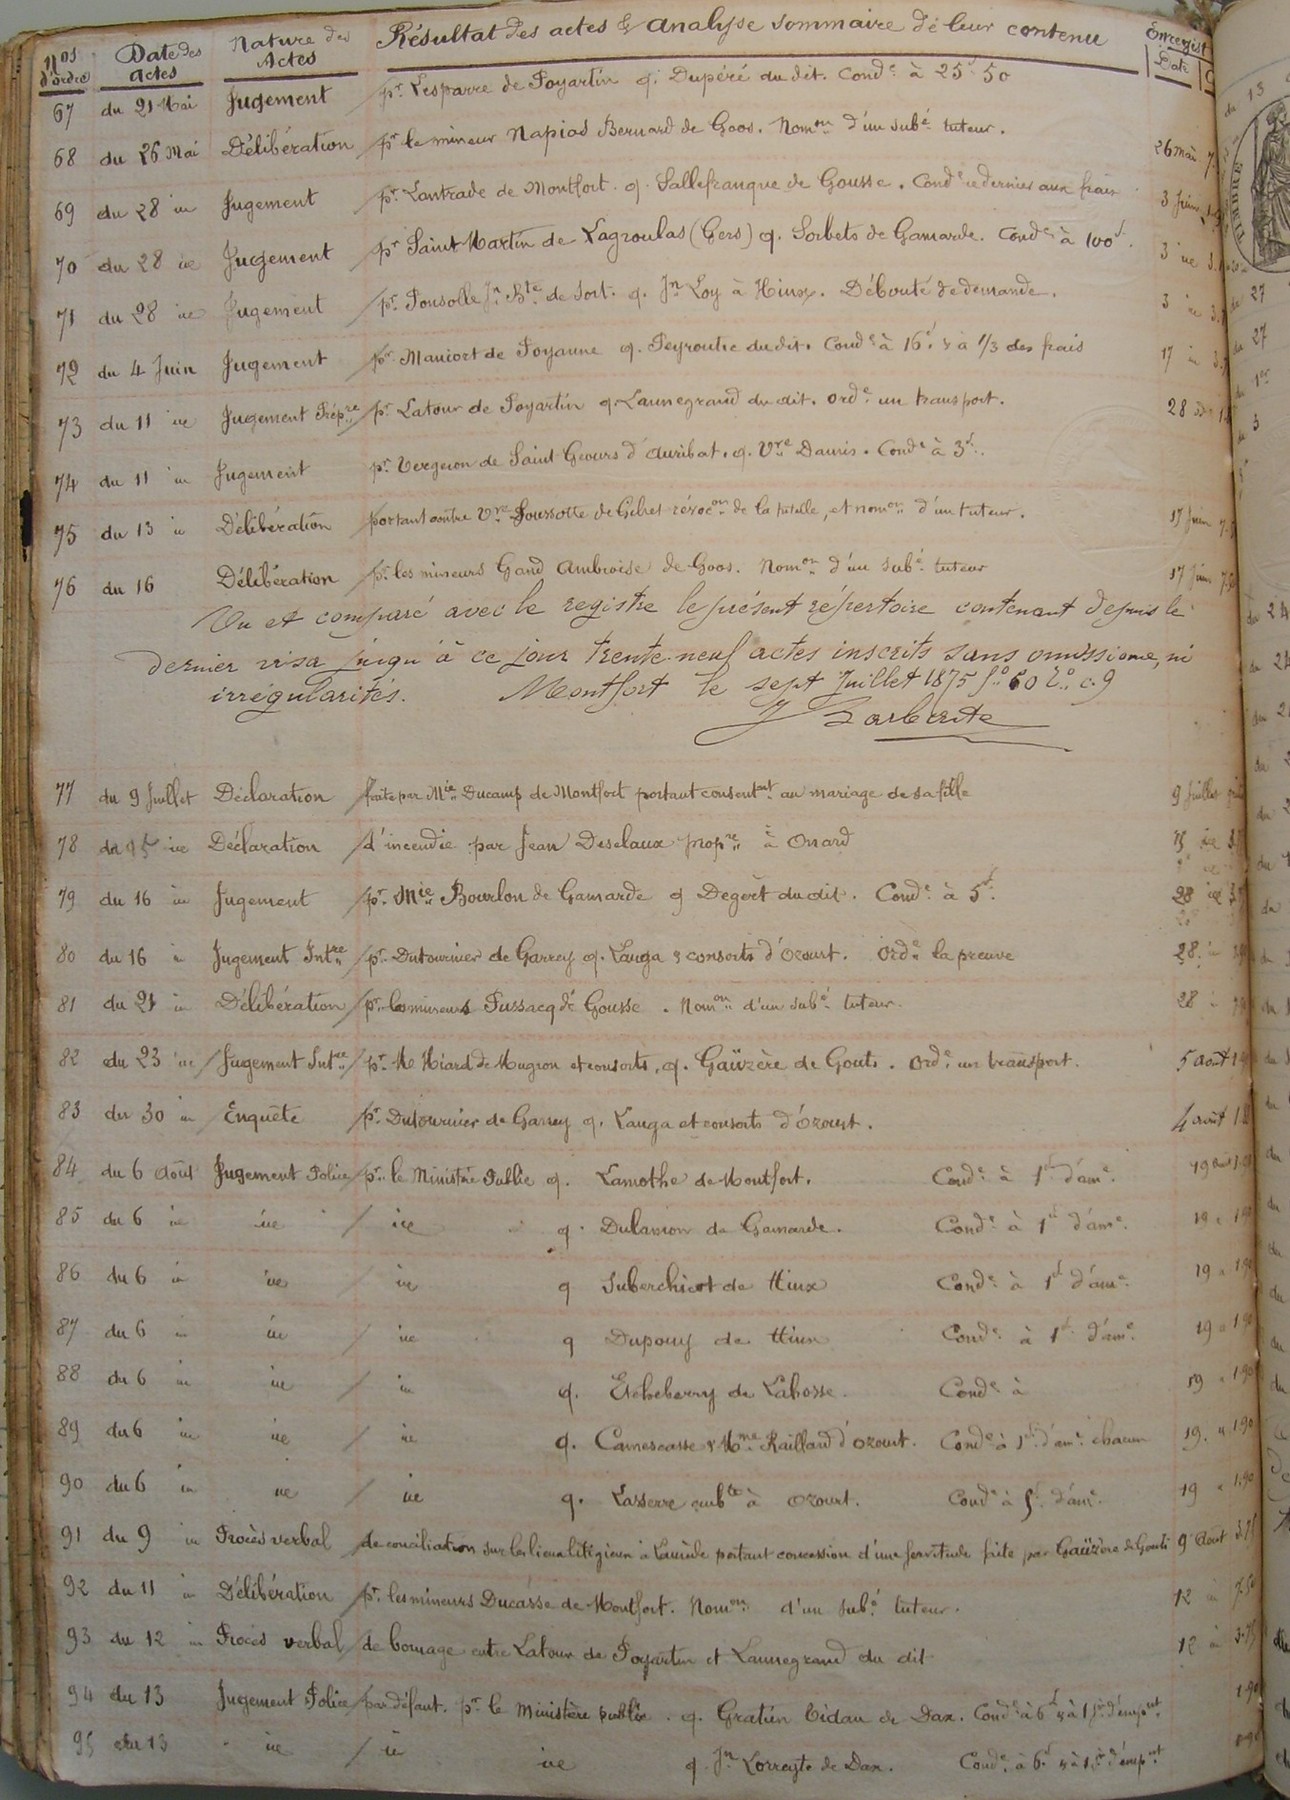 Nos d'ordre | Date des actes | Nature des Actes | Résultat des actes & analyse sommaire de leur contenu | Enregist | Date
67 du 21 Mai Jugement pr. Lesparre de Poyartin q. Dupéré du dit. Conde. à 25f 50
68 du 26 Mai Délibération pr le mineur Napias Bernard de Goos. Nomon d'un subé. tuteur. 26 mai
69 du 28 ie Jugement pr. Lantrade de Montfort. q. Sallefranque de Gousse. Conde ce dernier aux frais 3 Juin
70 du 28 ie Jugement pr Saint Martin de Lagroulas (Gers) q. Sorbets de Gamarde. Conde à 100f. 3 ie
71 du 28 ie Jugement pr. Pousolle Jn Bte de Sort. q. Jn Loy à Hinx. Débouté de demande. 3 ie
72 du 4 Juin Jugement pr. Maniort de Poyanne q. Peyroutic du dit. Conde à 16f. & à 1/3 des frais 17 ie
73 du 11 ie Jugement Prépre pr. Latour de Poyartin q. Launegrand du dit. Orde. un transport. 28
74 du 11 ie Jugement pr. Vergeron de Saint Geours d'Auribat. q. Vve Daunis. Conde à 3f.
75 du 13 ie Délibération portant contre Vve Poussotte de Gibret révocon de la tutelle, et nomon d'un tuteur. 17 Juin
76 du 16 Délibération pr. les mineurs Gand Ambroise de Goos. Nomon d'un subé. tuteur 17 Juin
Vu et comparé avec le registre le présent répertoire contenant depuis le
dernier visa jusqu'à ce jour trente-neuf actes inscrits sans omissions, ni
irrégularités. Montfort le sept Juillet 1875 fo 60 Vo c. 9
77 du 9 Juillet Déclaration faite par Mie Ducamp de Montfort portant consentnt au mariage de sa fille 9 Juillet
78 du 15 ie Déclaration d'incendie par Jean Desclaux propre à Onard 15 ie
79 du 16 ie Jugement pr. Mie Bourlon de Gamarde q Degert du dit. Conde à 5f. 28 ie
80 du 16 ie Jugement Intre pr. Dutournier de Garrey q. Lauga & consorts d'Ozourt. Orde la preuve 28 ie
81 du 21 ie Délibération pr. les mineurs Pussacq de Gousse. Nomon d'un subé tuteur. 28 ie
82 du 23 ie Jugement Intre pr. Me Hiard de Mugron et consorts, q. Gaüzère de Gouts. Orde. un transport. 5 août
83 du 30 ie Enquête pr. Dutournier de Garrey q. Lauga et consorts d'Ozourt. 4 août
84 du 6 Août Jugement Police pr. le Ministère Public q. Lamothe de Montfort. Conde à 1f d'ame. 19 août
85 du 6 ie ie ie q. Dulamon de Gamarde. Conde à 1f d'ame. 19 1.90
86 du 6 ie ie ie q Suberchicot de Hinx Conde à 1f d'ame. 19 " 1.90
87 du 6 ie ie ie q Dupouy de Hinx Conde à 1f d'ame. 19 " 1.90
88 du 6 ie ie ie q. Etcheberry de Lahosse. Conde à 19 " 1.90
89 du 6 ie ie ie q. Camescasse & Mme Raillard d'Ozourt. Conde à 1f. d'ame. chacun 19. " 1.90
90 du 6 ie ie ie q. Lasserre aubte à Ozourt. Conde à 5f. d'ame. 19 " 1.90
91 du 9 ie Procès verbal de conciliation sur les lieux litigieux à Laurède portant concession d'une servitude faite par Gaüzère de Gouts 9 Août 3.75
92 du 11 ie Délibération pr. les mineurs Ducasse de Montfort. Nomon d'un subé tuteur. 12 ie 7.50
93 du 12 ie Procès verbal de bornage entre Latour de Poyartin et Launegrand du dit 12 ie 3.75
94 du 13 Jugement Police par défaut. pr. le Ministère public. q. Gratien Bidau de Dax. Conde à 6f & à 1 jr d'empnt 1.90
95 du 13 ie ie ie q. Jn Lorreyte de Dax. Conde. à 6f & à 1 jr d'empnt
TIMBRE